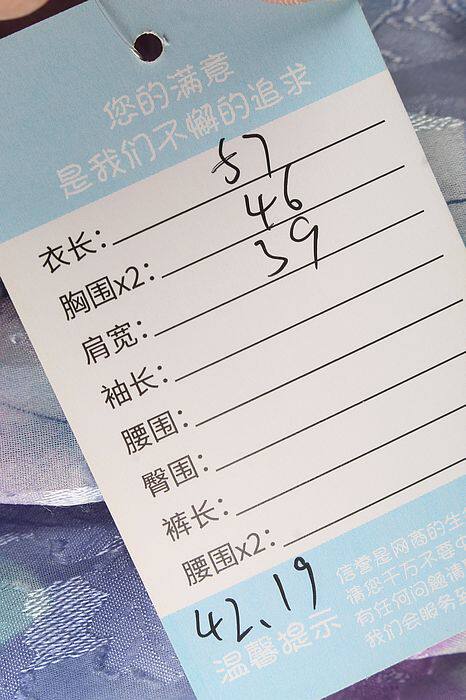 您的满意
是我们不懈的追求
衣长: 57
胸围x2: 46
肩宽: 39
袖长:
腰围:
臀围:
裤长:
腰围x2:
42.19
温馨提示
信誉是网商的生
请您千万不要中
有任何问题请
我们会服务到